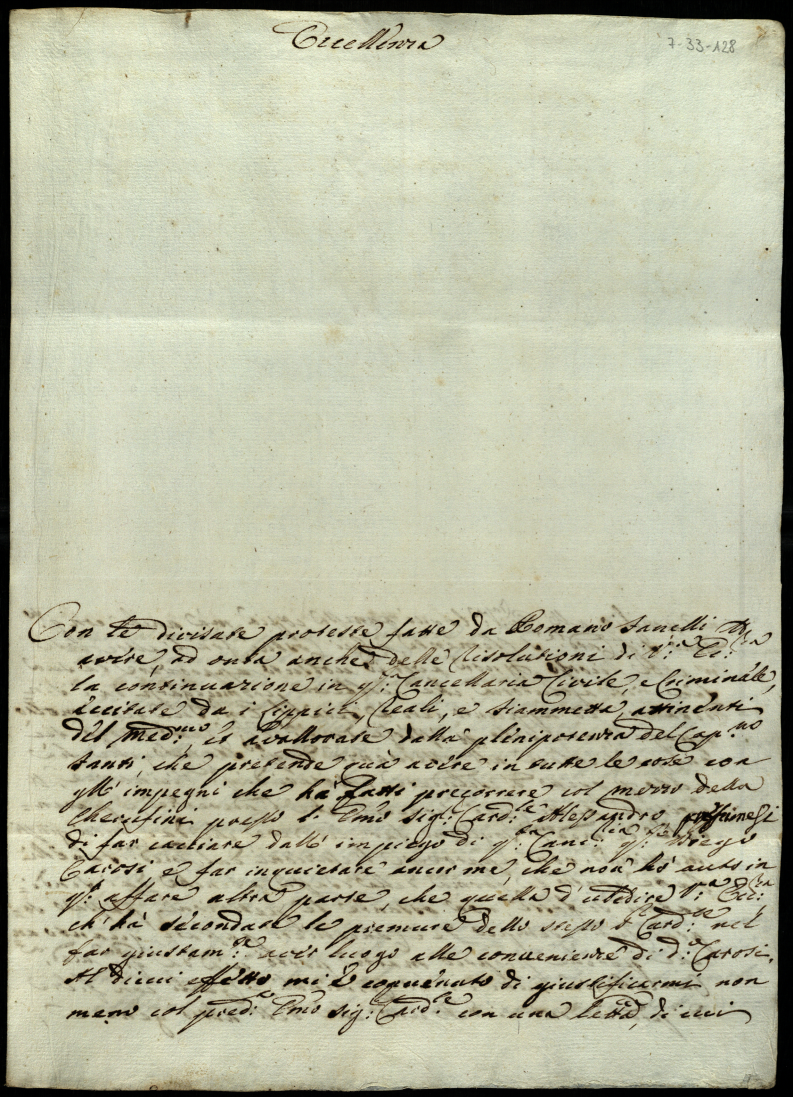 Eccellenza
7-33-128
Con le divisate proteste fatte da Romano Sanelli
avere, ad onta anche delle risolutioni di V.ª Ecc.za
la continuazione in q.ª Cancellaria Civile, e Criminale,
eccitate da i Cippici, Reali, e Fiammetta, attinenti
del med.mo et avallorate dalla plenipotenza del Cap.no
Santi, che pretende quà avere in tutte le cose con
gl'impegni che hà fatti precorrere col mezzo della
Cherufini presso l'Em̃o Sig.r Card.le Alessandro,
di far cacciare dall'impiego di q.ta Canc.ria q.to Diego
Carosi e far inquietare ancor me, che non hò auto in
q.to affare altra parte, che quella d'ubedire V.ª Ecc.za
ch'hà secondate le premure dello stesso S.r Card.le nel
far giustam.te aver luogo alle convenienze di d.º Carosi.
Al di cui effetto mi è convenuto di giustificarmi non
meno col pred.º Em̃o Sig.r Card.le con una lettã, di cui